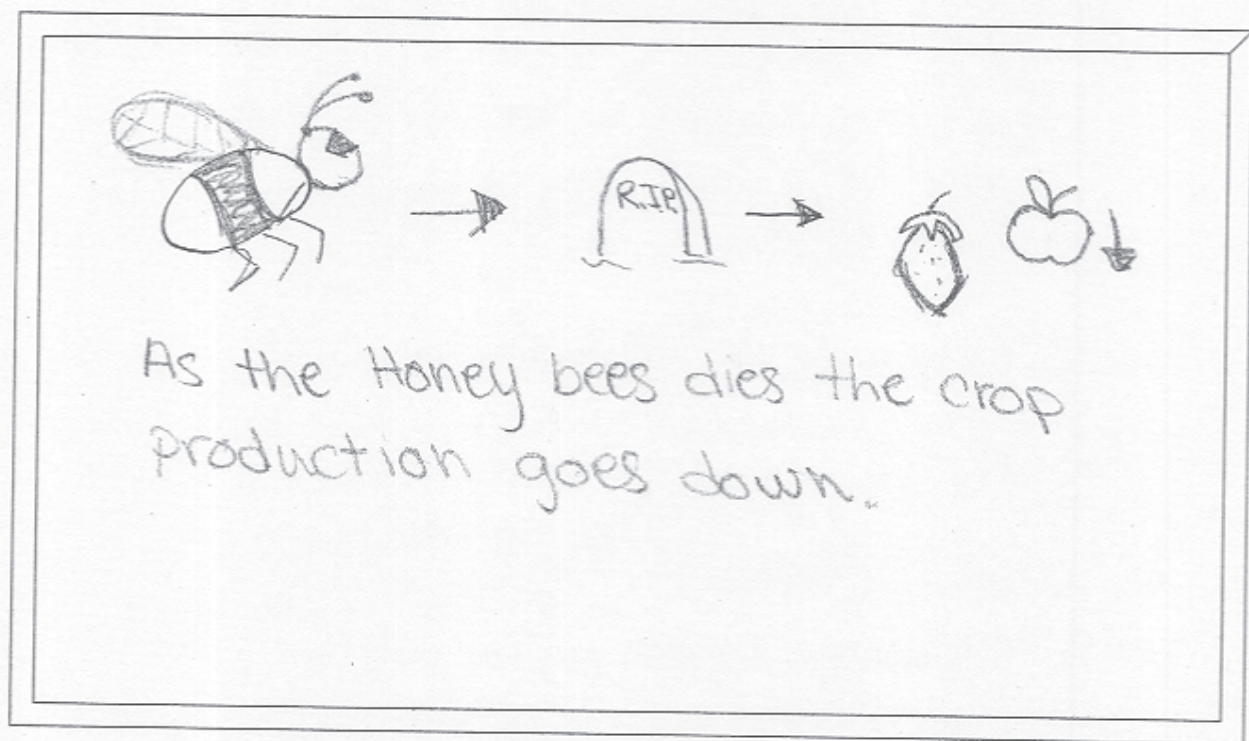 R.I.P.
As the Honey bees dies the crop
production goes down.